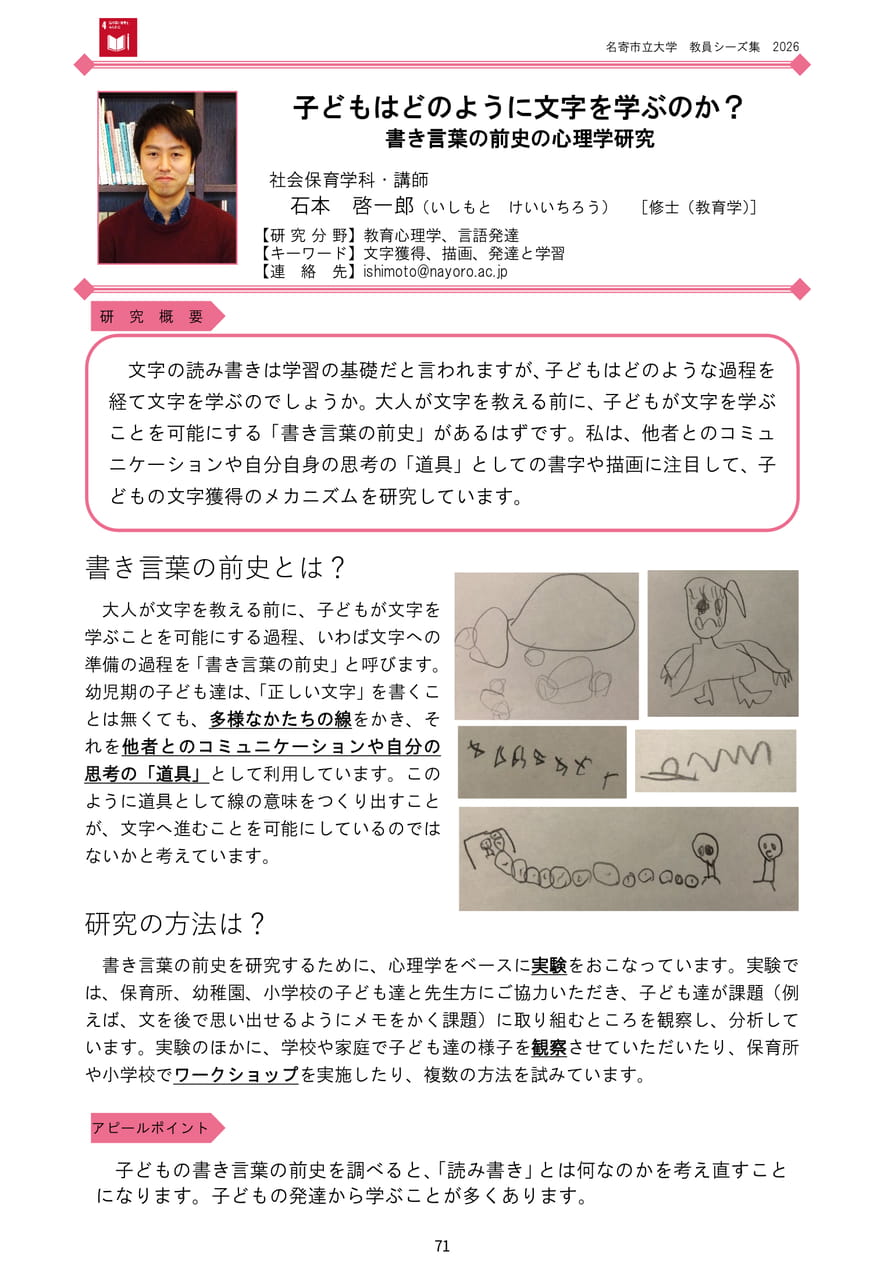 4 質の高い教育を
みんなに
名寄市立大学　教員シーズ集　2026
子どもはどのように文字を学ぶのか？
書き言葉の前史の心理学研究
社会保育学科・講師
石本　啓一郎（いしもと　けいいちろう）　［修士（教育学）］
【研 究 分 野】教育心理学、言語発達
【キーワード】文字獲得、描画、発達と学習
【連　絡　先】ishimoto@nayoro.ac.jp
研　究　概　要
文字の読み書きは学習の基礎だと言われますが、子どもはどのような過程を
経て文字を学ぶのでしょうか。大人が文字を教える前に、子どもが文字を学ぶ
ことを可能にする「書き言葉の前史」があるはずです。私は、他者とのコミュ
ニケーションや自分自身の思考の「道具」としての書字や描画に注目して、子
どもの文字獲得のメカニズムを研究しています。
書き言葉の前史とは？
大人が文字を教える前に、子どもが文字を
学ぶことを可能にする過程、いわば文字への
準備の過程を「書き言葉の前史」と呼びます。
幼児期の子ども達は、「正しい文字」を書くこ
とは無くても、多様なかたちの線をかき、そ
れを他者とのコミュニケーションや自分の
思考の「道具」として利用しています。この
ように道具として線の意味をつくり出すこと
が、文字へ進むことを可能にしているのでは
ないかと考えています。
研究の方法は？
書き言葉の前史を研究するために、心理学をベースに実験をおこなっています。実験で
は、保育所、幼稚園、小学校の子ども達と先生方にご協力いただき、子ども達が課題（例
えば、文を後で思い出せるようにメモをかく課題）に取り組むところを観察し、分析して
います。実験のほかに、学校や家庭で子ども達の様子を観察させていただいたり、保育所
や小学校でワークショップを実施したり、複数の方法を試みています。
アピールポイント
子どもの書き言葉の前史を調べると、「読み書き」とは何なのかを考え直すこと
になります。子どもの発達から学ぶことが多くあります。
71